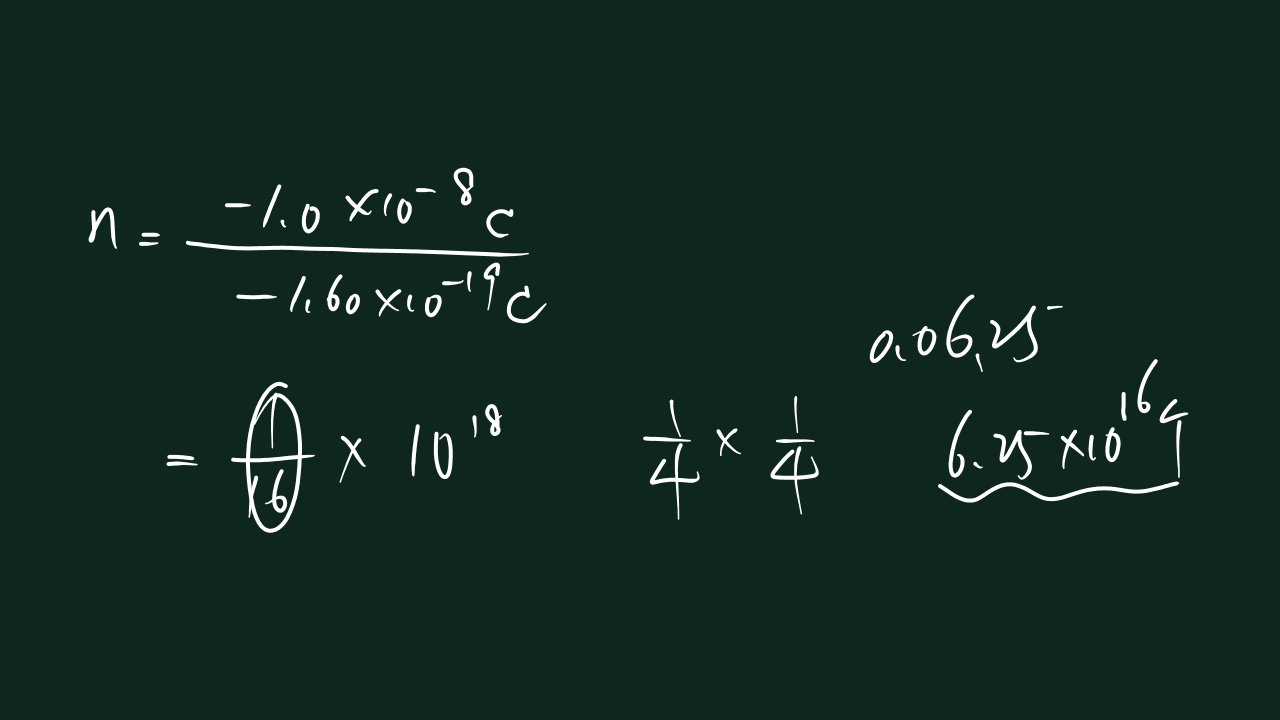 n = -1.0 ×10⁻⁸ C / -1.60 ×10⁻¹⁹ C
= 1/16 × 10¹⁸
1/4 × 1/4
0.06.25
6.25 ×10¹⁶ 个